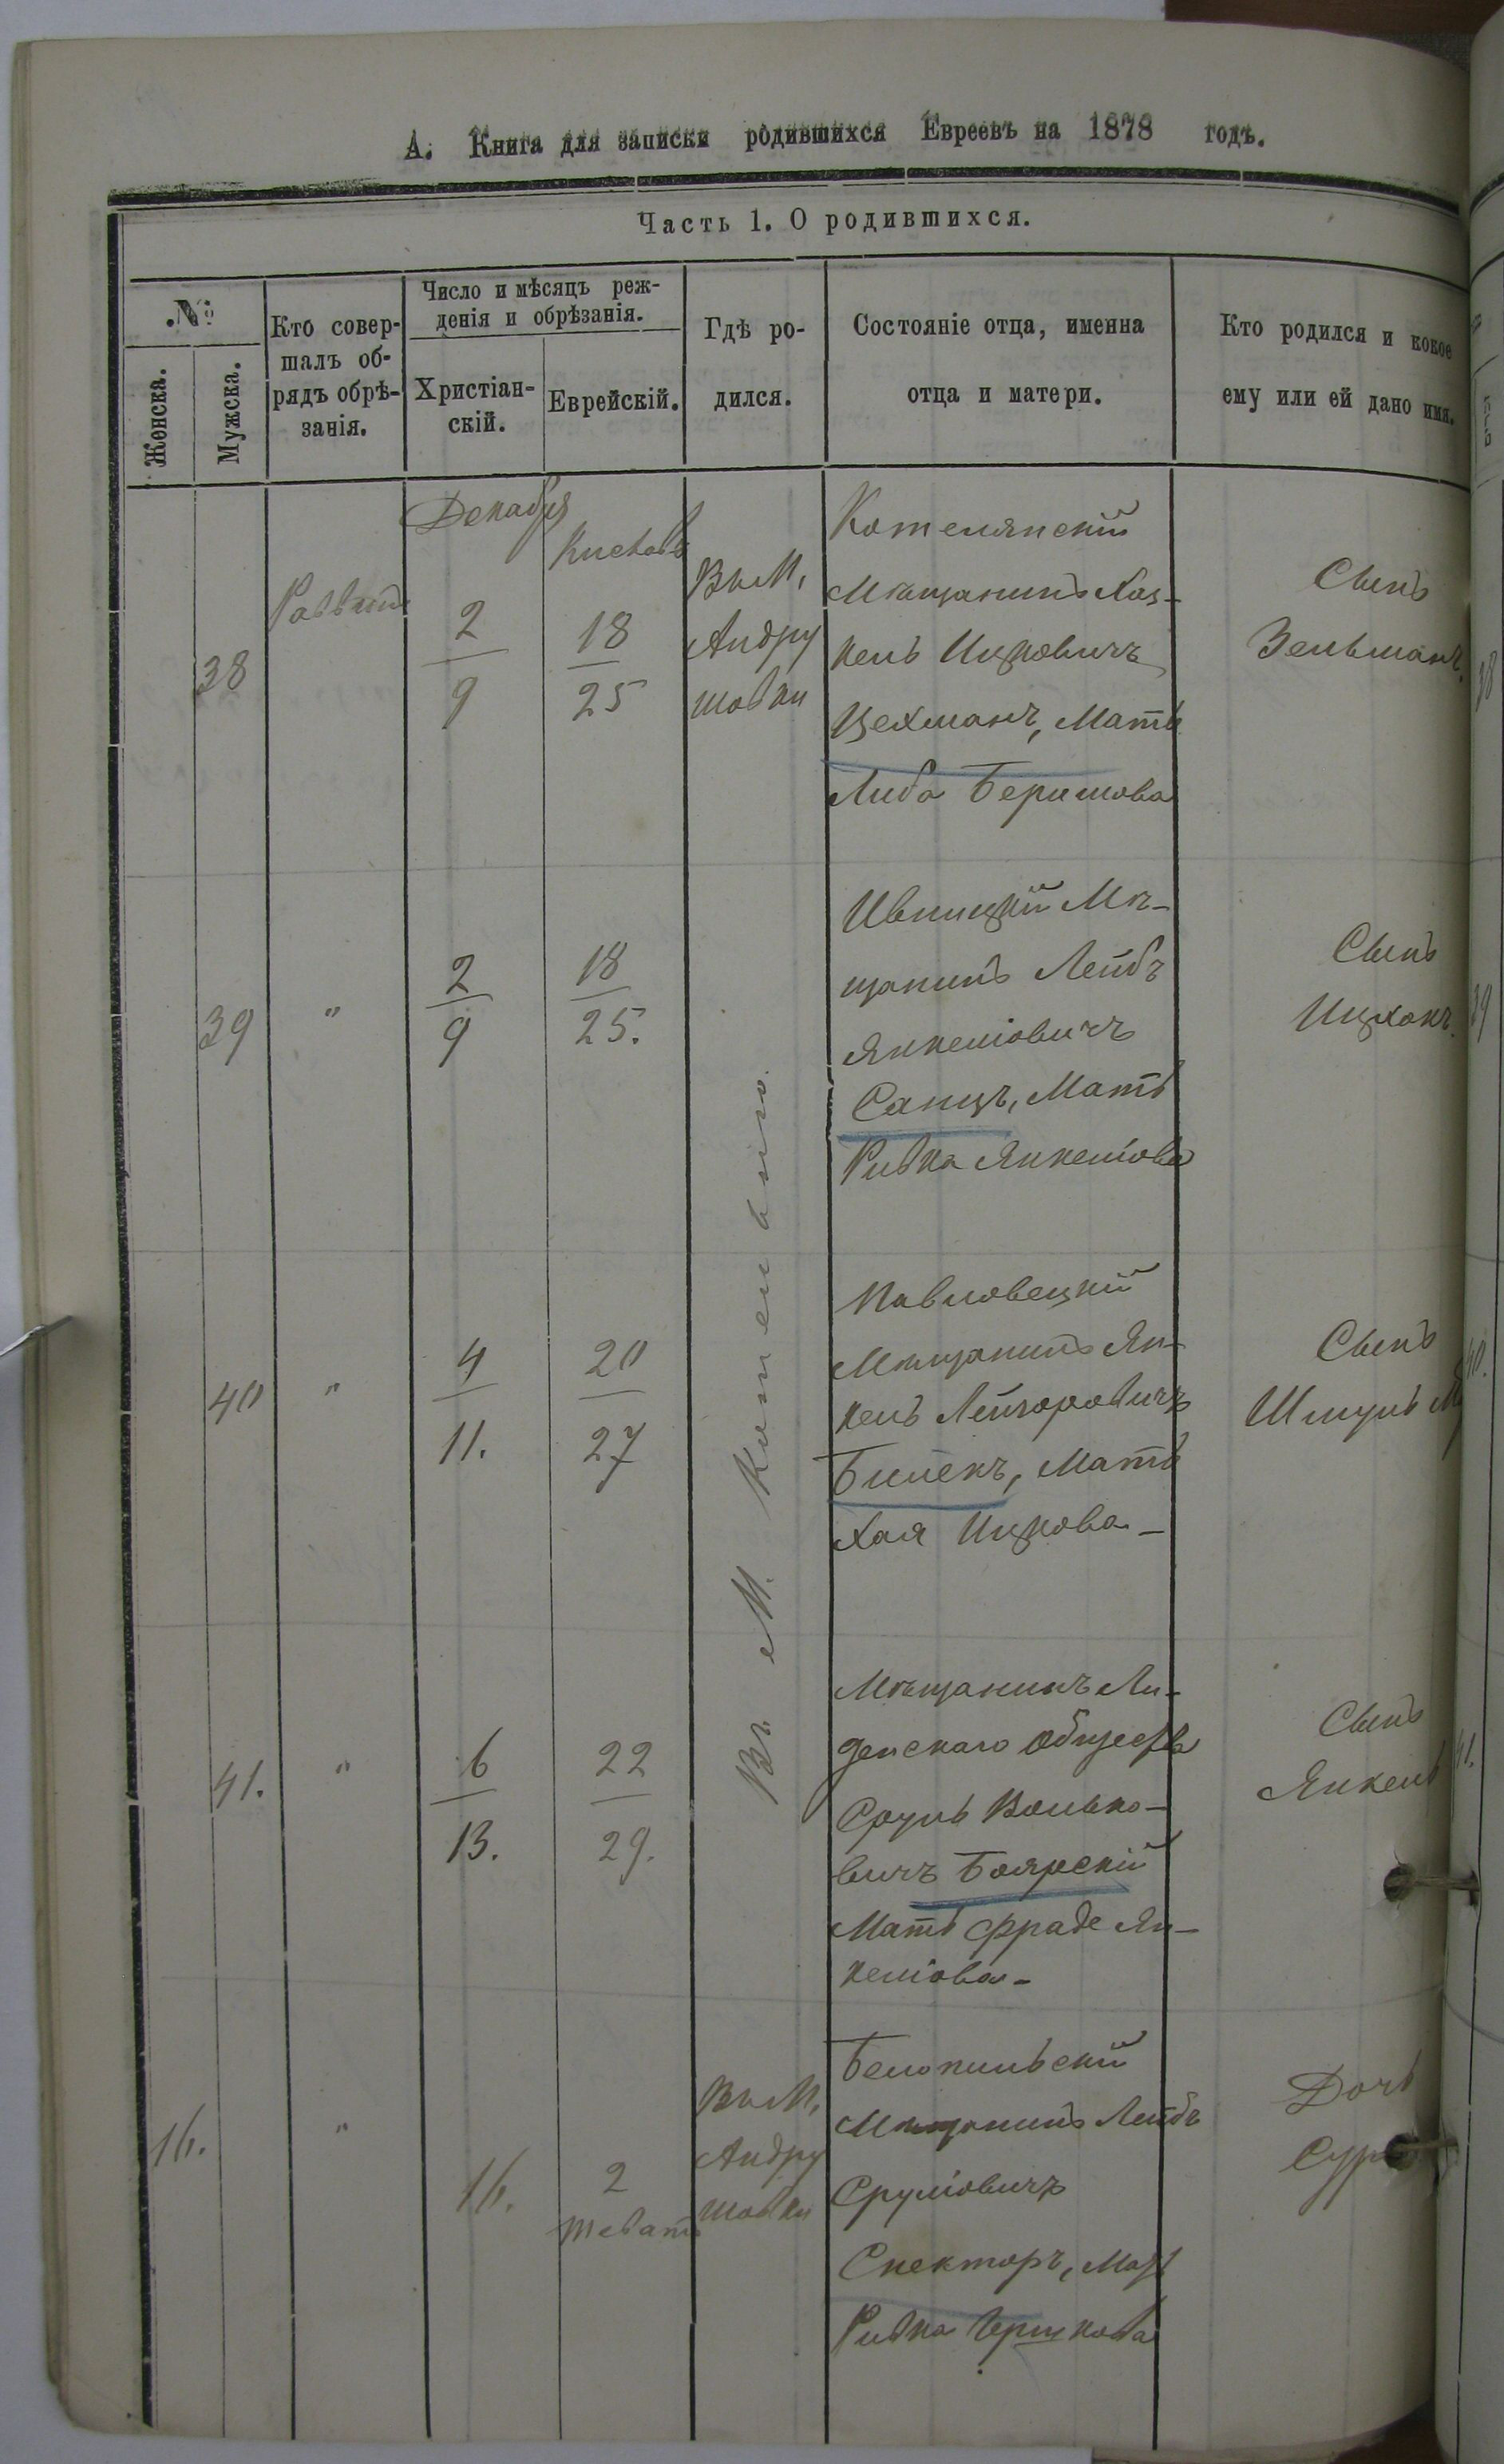 А. Книга для записки родившихся Евреевъ на 1878 годъ.
Часть 1. О родившихся.
№
Женска.
Мужска.
Кто совер-
шалъ об-
рядъ обрѣ-
занія.
Число и мѣсяцъ реж-
денія и обрѣзанія.
Христіан-
скій.
Еврейскій.
Гдѣ ро-
дился.
Состояніе отца, именна
отца и матери.
Кто родился и кокое
ему или ей дано имя.
38
Раввинъ
Декабря
2
9
Кислевъ
18
25
Въ М.
Андру
шовки
Котелянскій
Мѣщанинъ Хац-
кель Ицковичъ
Цехманъ, Мать
Либа Беришова
Сынъ
Зельманъ.
39
"
2
9
18
25.
Ивницкій Мѣ-
щанинъ Лейбъ
Янкеліовичъ
Сапиръ, Мать
Ривка Янкеліова
Сынъ
Ицхокъ.
40
"
4
11.
20
27
Въ М. Котельню.
Павловецкій
Мѣщанинъ Ян-
кель Лейзоровичъ
Билекъ, Мать
Хая Ицкова -
Сынъ
Шмуль
41.
"
6
13.
22
29.
Мѣщанинъ Ли-
денскаго Общества
Сруль Волько-
вичъ Боярскій
Мать Фраде Ян-
келіова -
Сынъ
Янкель
16.
"
16.
2
Теватъ
Въ М.
Андру
шовки
Белопильскій
Мѣщанинъ Лейбъ
Сруліовичъ
Спекторъ, Мать
Ривка Гершкова
Дочь